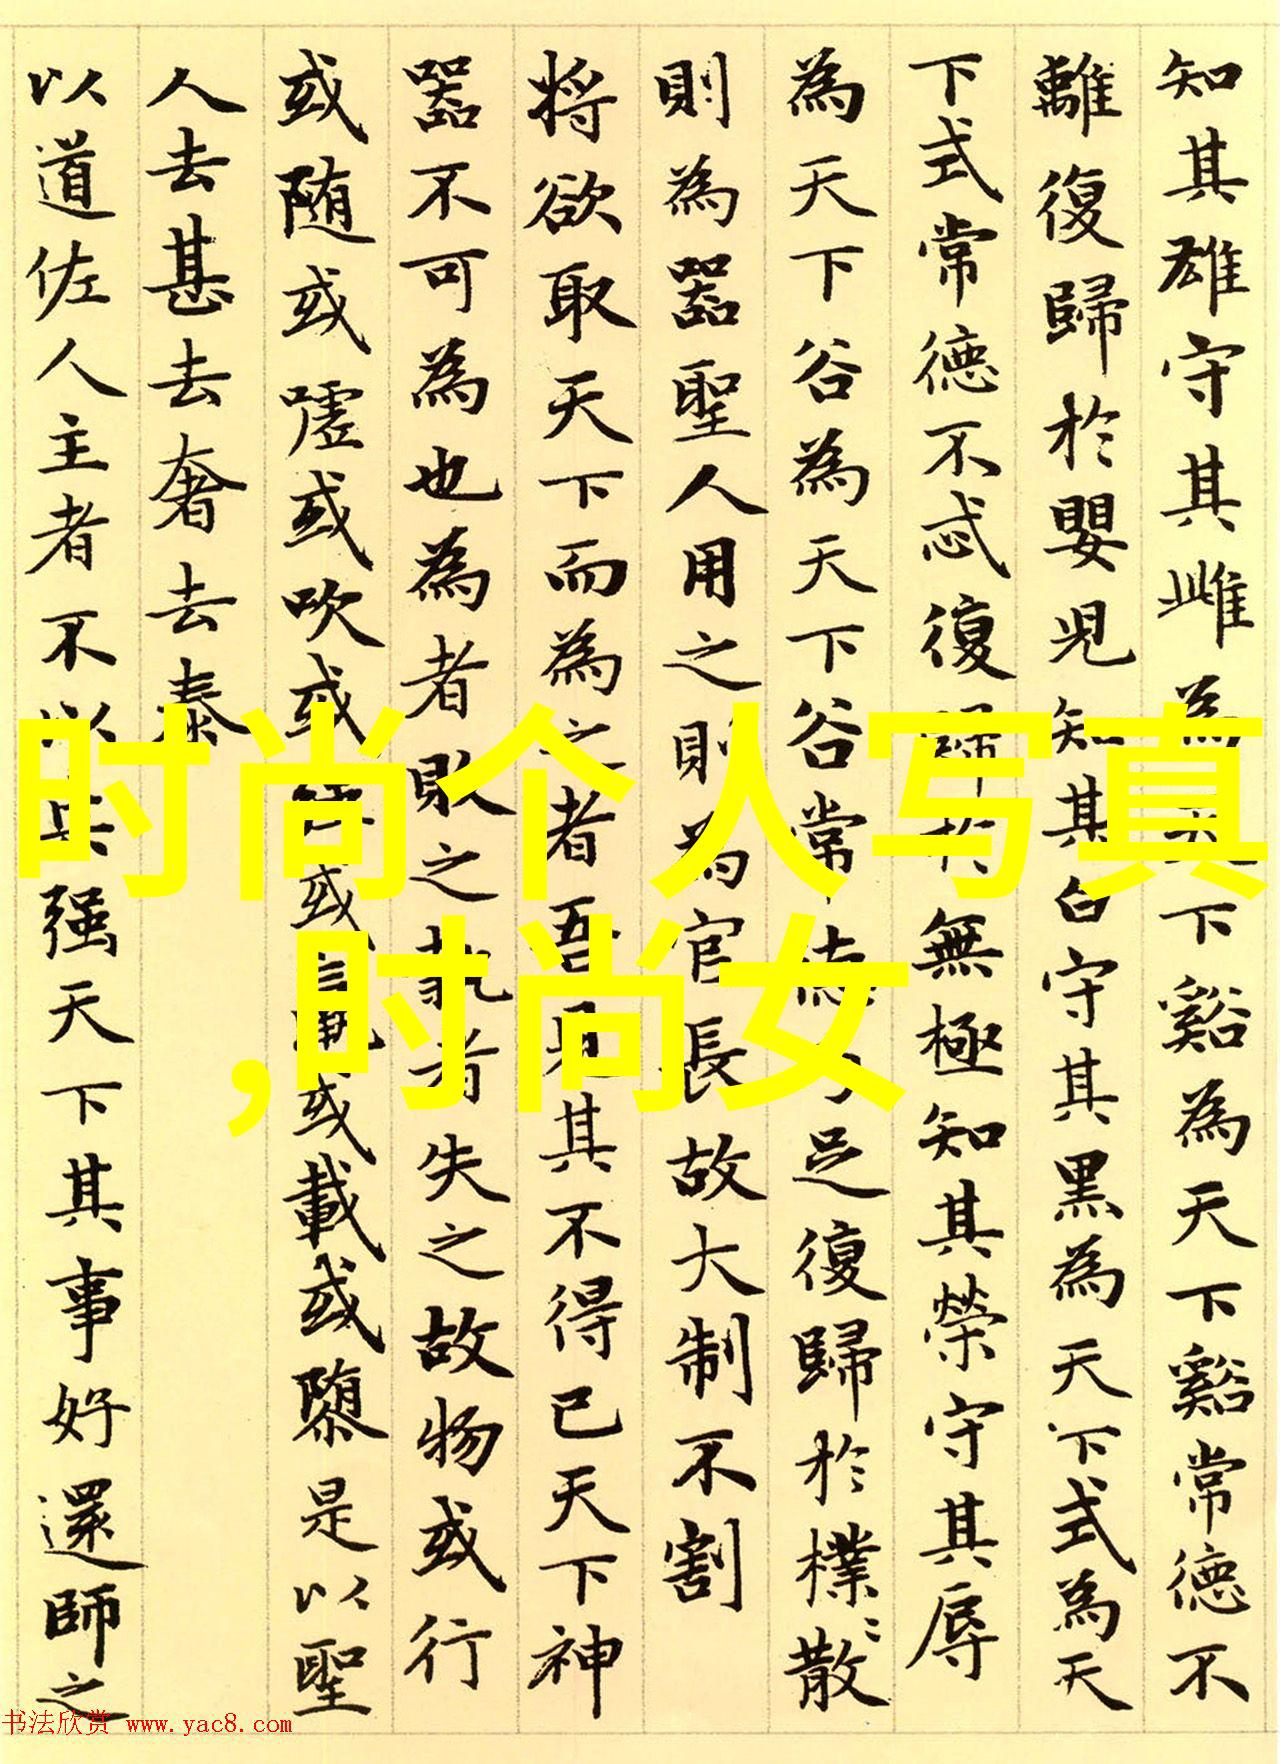 知其雄守其雌為天下谿為天下谿常徳不
離復歸於嬰兒知其白守其黑為天下式為天
下式常徳不忒復歸於無極知其榮守其辱
為天下谷為天下谷常徳乃足復歸於樸〻散
則為器聖人用之則為官長故大制不割
将欲取天下而為之者吾見其不得已天下神
器不可為也為者敗之執者失之故物或行
或随或嘘或吹或或或載或隳是以聖
人去甚去奢去泰
以道佐人主者不以兵强天下其事好還師之
时尚个人写真
,时尚女
书法欣赏 www.yac8.com